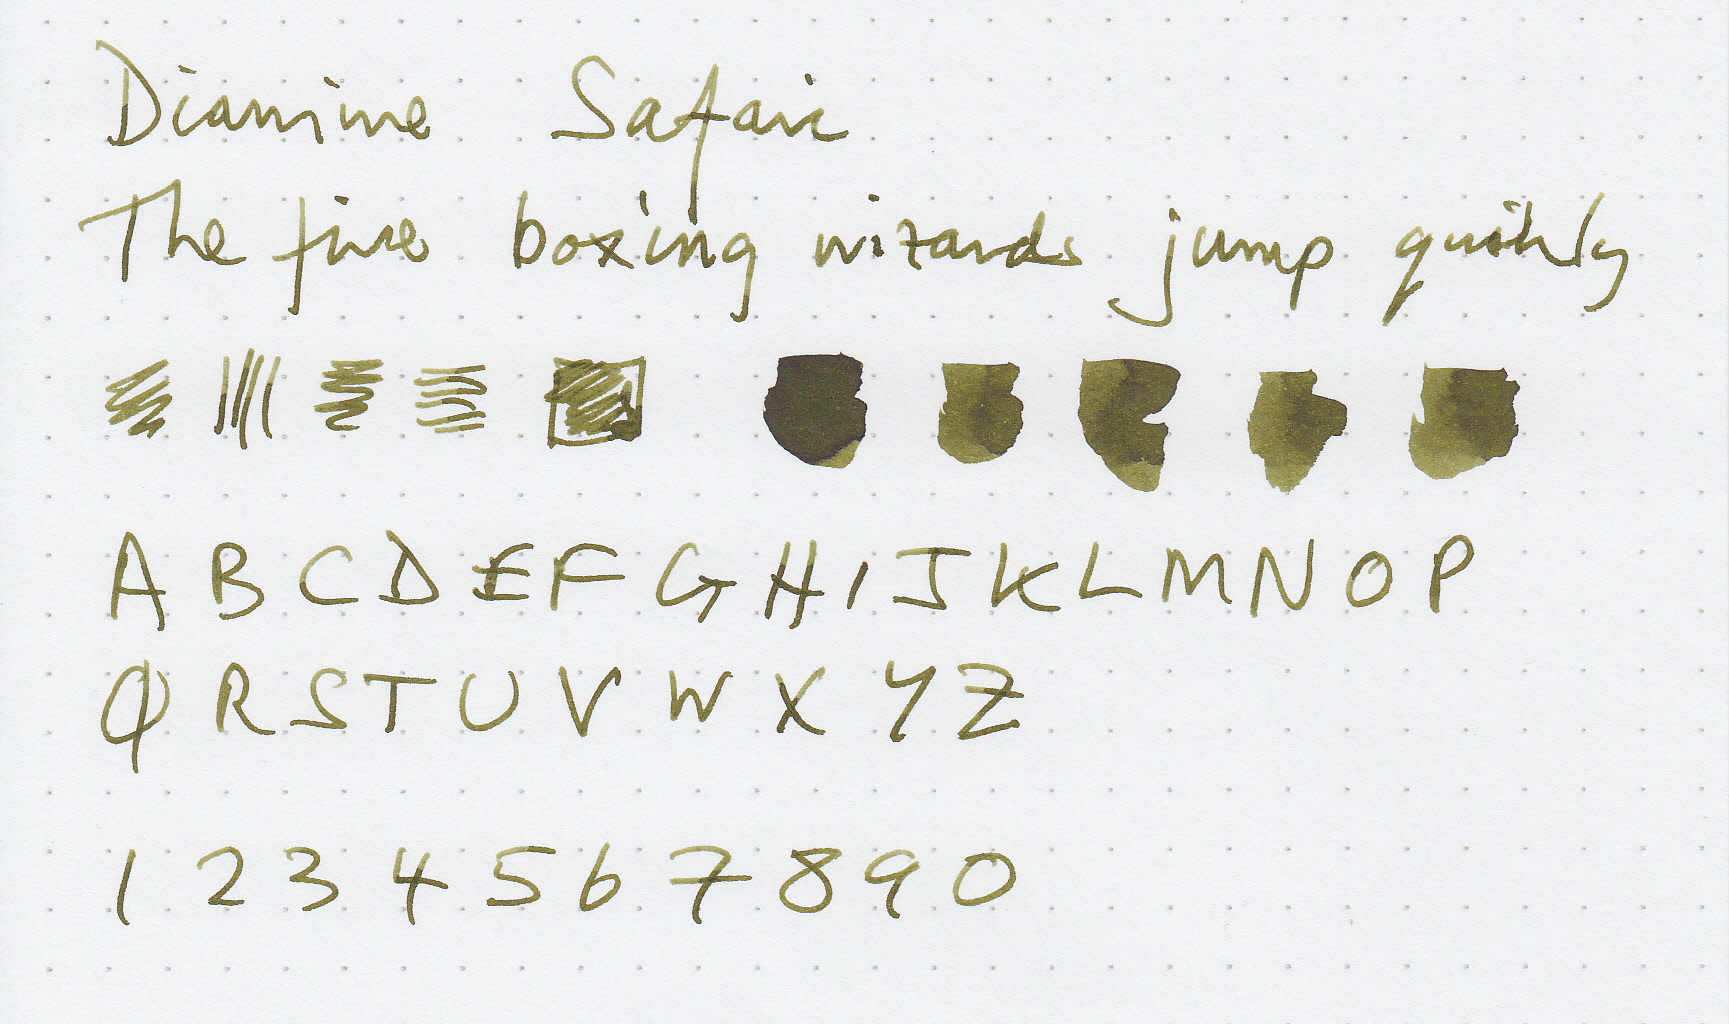 Diamine Safari
The five boxing wizards jump quickly
A B C D E F G H I J K L M N O P
Q R S T U V W X Y Z
1 2 3 4 5 6 7 8 9 0